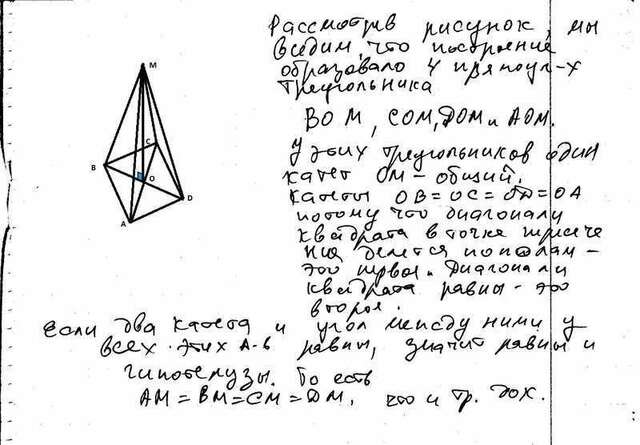 Рассмотрев рисунок, мы
видим, что построение
образовало 4 прямоуг-х
треугольника
BOM, COM, DOM и AOM.
У этих треугольников один
катет OM - общий.
Катеты OB = OC = OD = OA
потому что диагонали
квадрата в точке пересече
ния делятся пополам -
это первое. Диагонали
квадрата равны - это
второе.
Если два катета и угол между ними у
всех этих Δ-в равны, значит равны и
гипотенузы. То есть
AM = BM = CM = DM, что и тр. док.
M
C
B
O
D
A